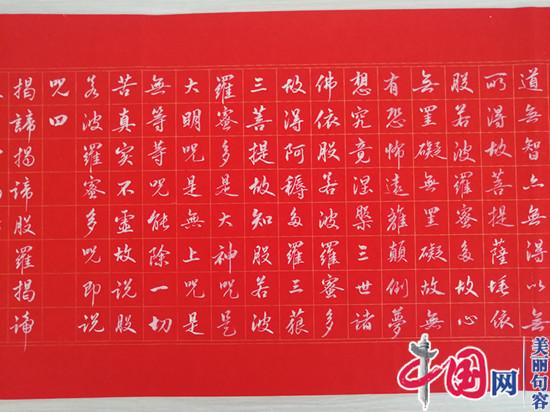 道無智亦無得以無
所得故菩提薩埵依
般若波羅蜜多故心
無罣礙無罣礙故無
有恐怖遠離顛倒夢
想究竟涅槃三世諸
佛依般若波羅蜜多
故得阿耨多羅三藐
三菩提故知般若波
羅蜜多是大神咒是
大明咒是無上咒是
無等等咒能除一切
苦真實不虛故說般
若波羅蜜多咒即說
咒曰
揭諦揭諦般羅揭諦
中国网
美丽句容